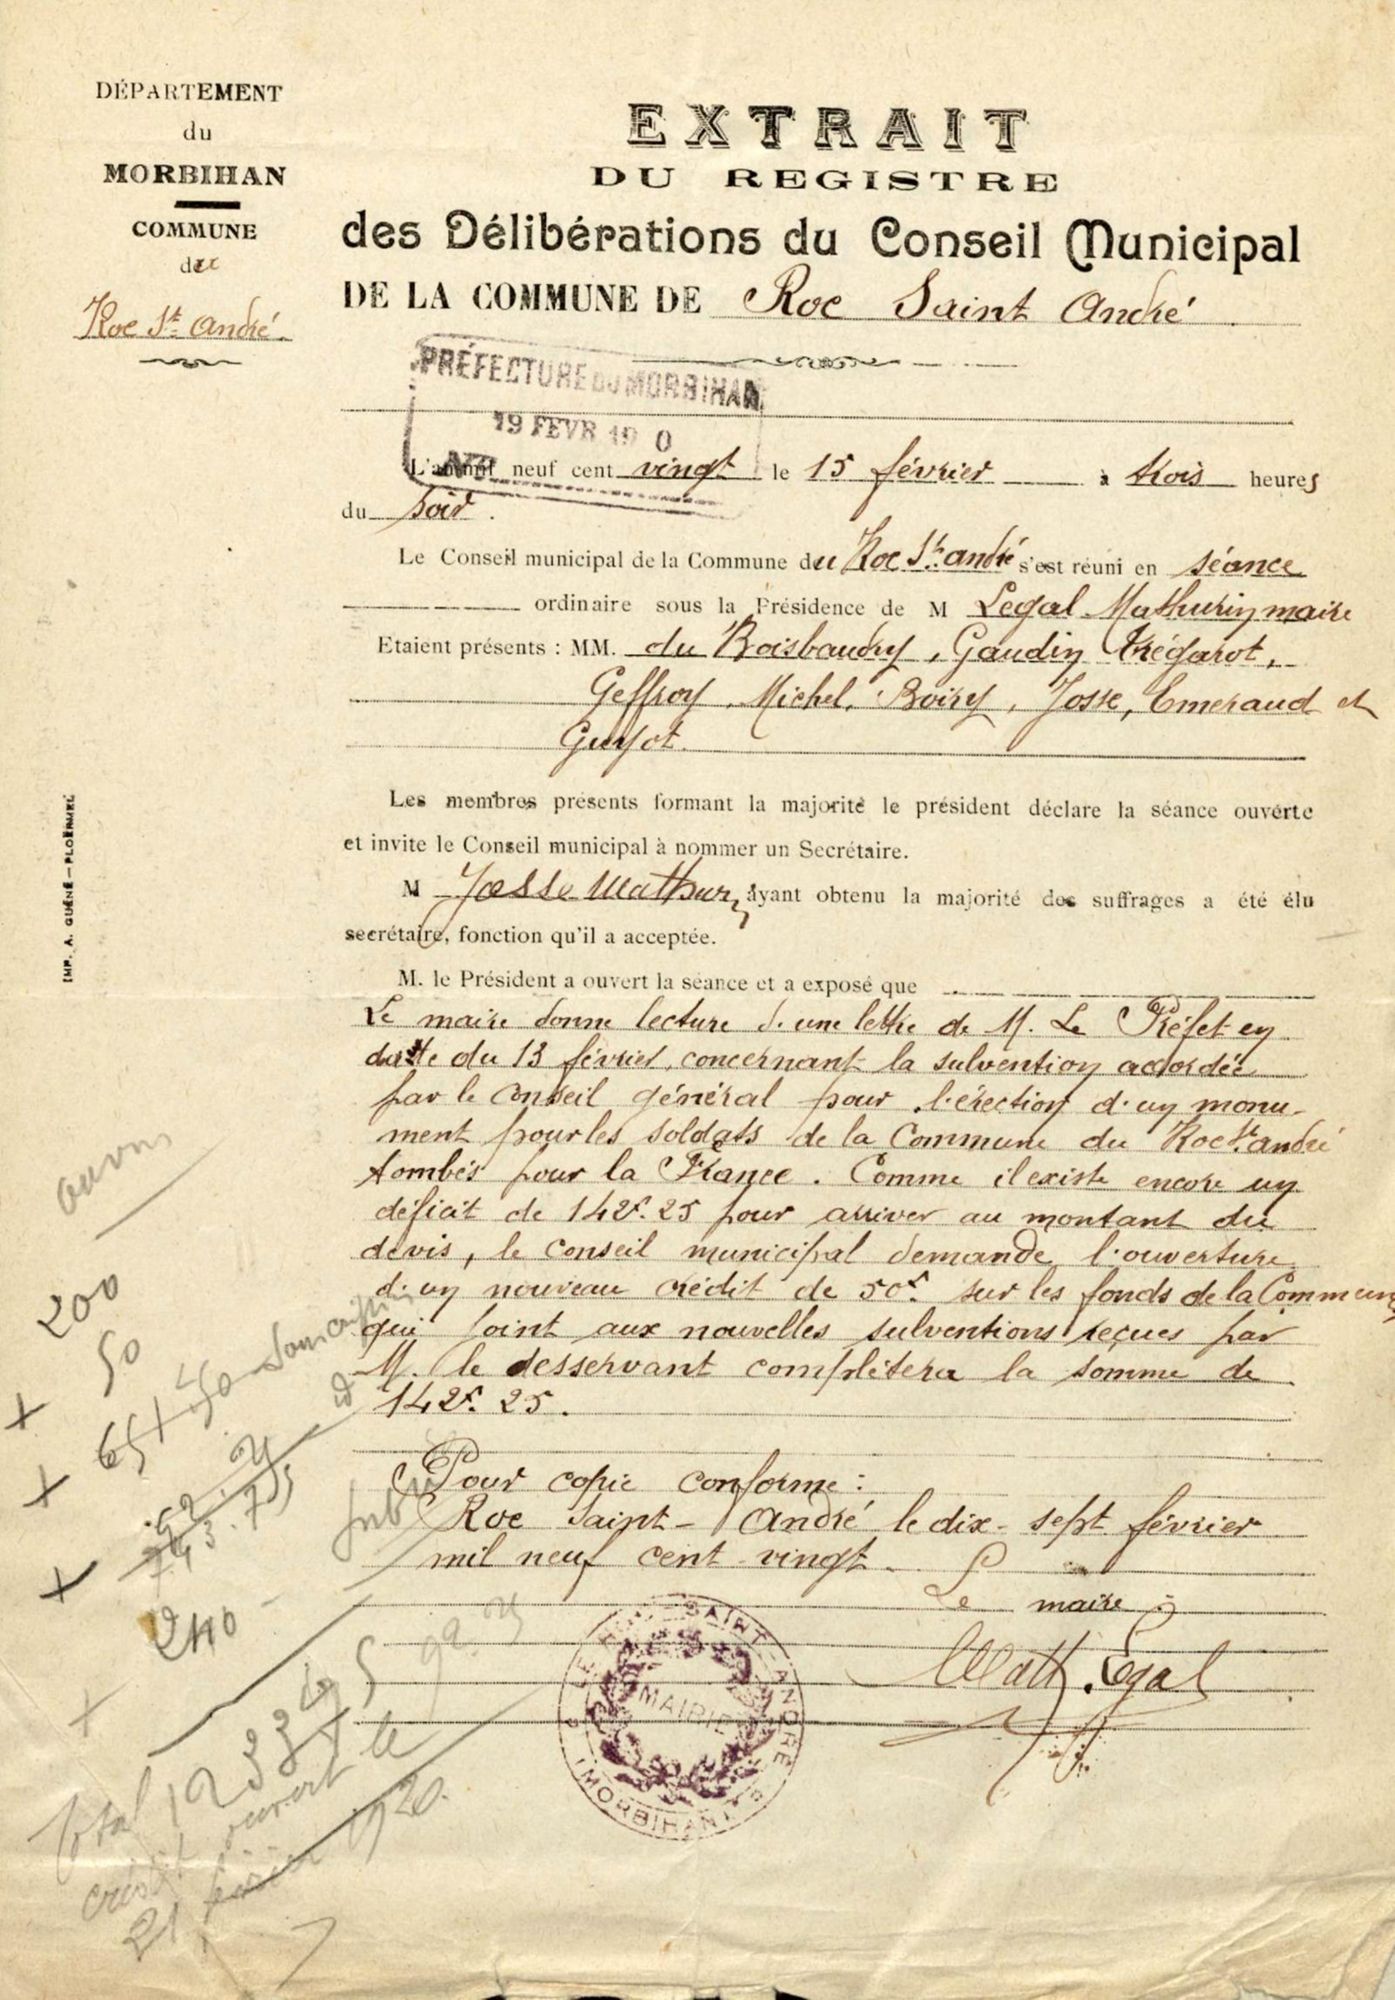 DÉPARTEMENT
du
MORBIHAN
COMMUNE
du
Roc St André
EXTRAIT
DU REGISTRE
des Délibérations du Conseil Municipal
DE LA COMMUNE DE Roc Saint André
PRÉFECTURE DU MORBIHAN
19 FEVR 19 0
L'an mil neuf cent vingt le 15 février à trois heures
du soir.
Le Conseil municipal de la Commune du Roc St André s'est réuni en séance
ordinaire sous la Présidence de M Legal Mathurin maire
Etaient présents : MM. du Boisbaudry, Gaudin Trégarot,
Geffroy, Michel, Boiry, Josse, Emeraud et
Guyot.
Les membres présents formant la majorité le président déclare la séance ouverte
et invite le Conseil municipal à nommer un Secrétaire.
M Josse Mathurin ayant obtenu la majorité des suffrages a été élu
secrétaire, fonction qu'il a acceptée.
M. le Président a ouvert la séance et a exposé que
Le maire donne lecture d'une lettre de M. Le Préfet en
date du 13 février, concernant la subvention accordée
par le Conseil général pour l'érection d'un monu-
ment pour les soldats de la Commune du Roc St André
tombés pour la France. Comme il existe encore un
déficit de 142f.25 pour arriver au montant du
devis, le Conseil municipal demande l'ouverture
d'un nouveau crédit de 50f. sur les fonds de la Commune
qui joint aux nouvelles subventions reçues par
M. le desservant complètera la somme de
142f.25.
Pour copie conforme :
Roc Saint-André le dix-sept février
mil neuf cent vingt.
Le maire :
Math. Légal
MAIRIE
SAINT-ANDRÉ
(MORBIHAN)
IMP. A. GUÉNÉ — PLOERMEL
200
50
65
50 Souscription
240
92.25
Total
crédit ouvert le
21 février 1920.